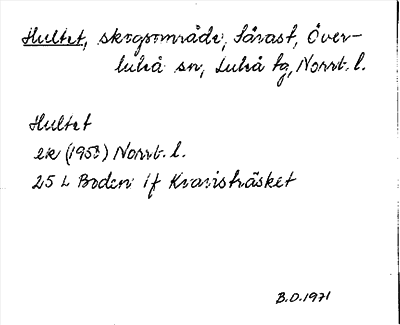 Hultet, skogsområde, Sävast, Över-
luleå sn, Luleå tg, Norrb. l.
Hultet
ek (1958) Norrb. l.
25 L Boden 1f Kvaristräsket
B.O. 1971